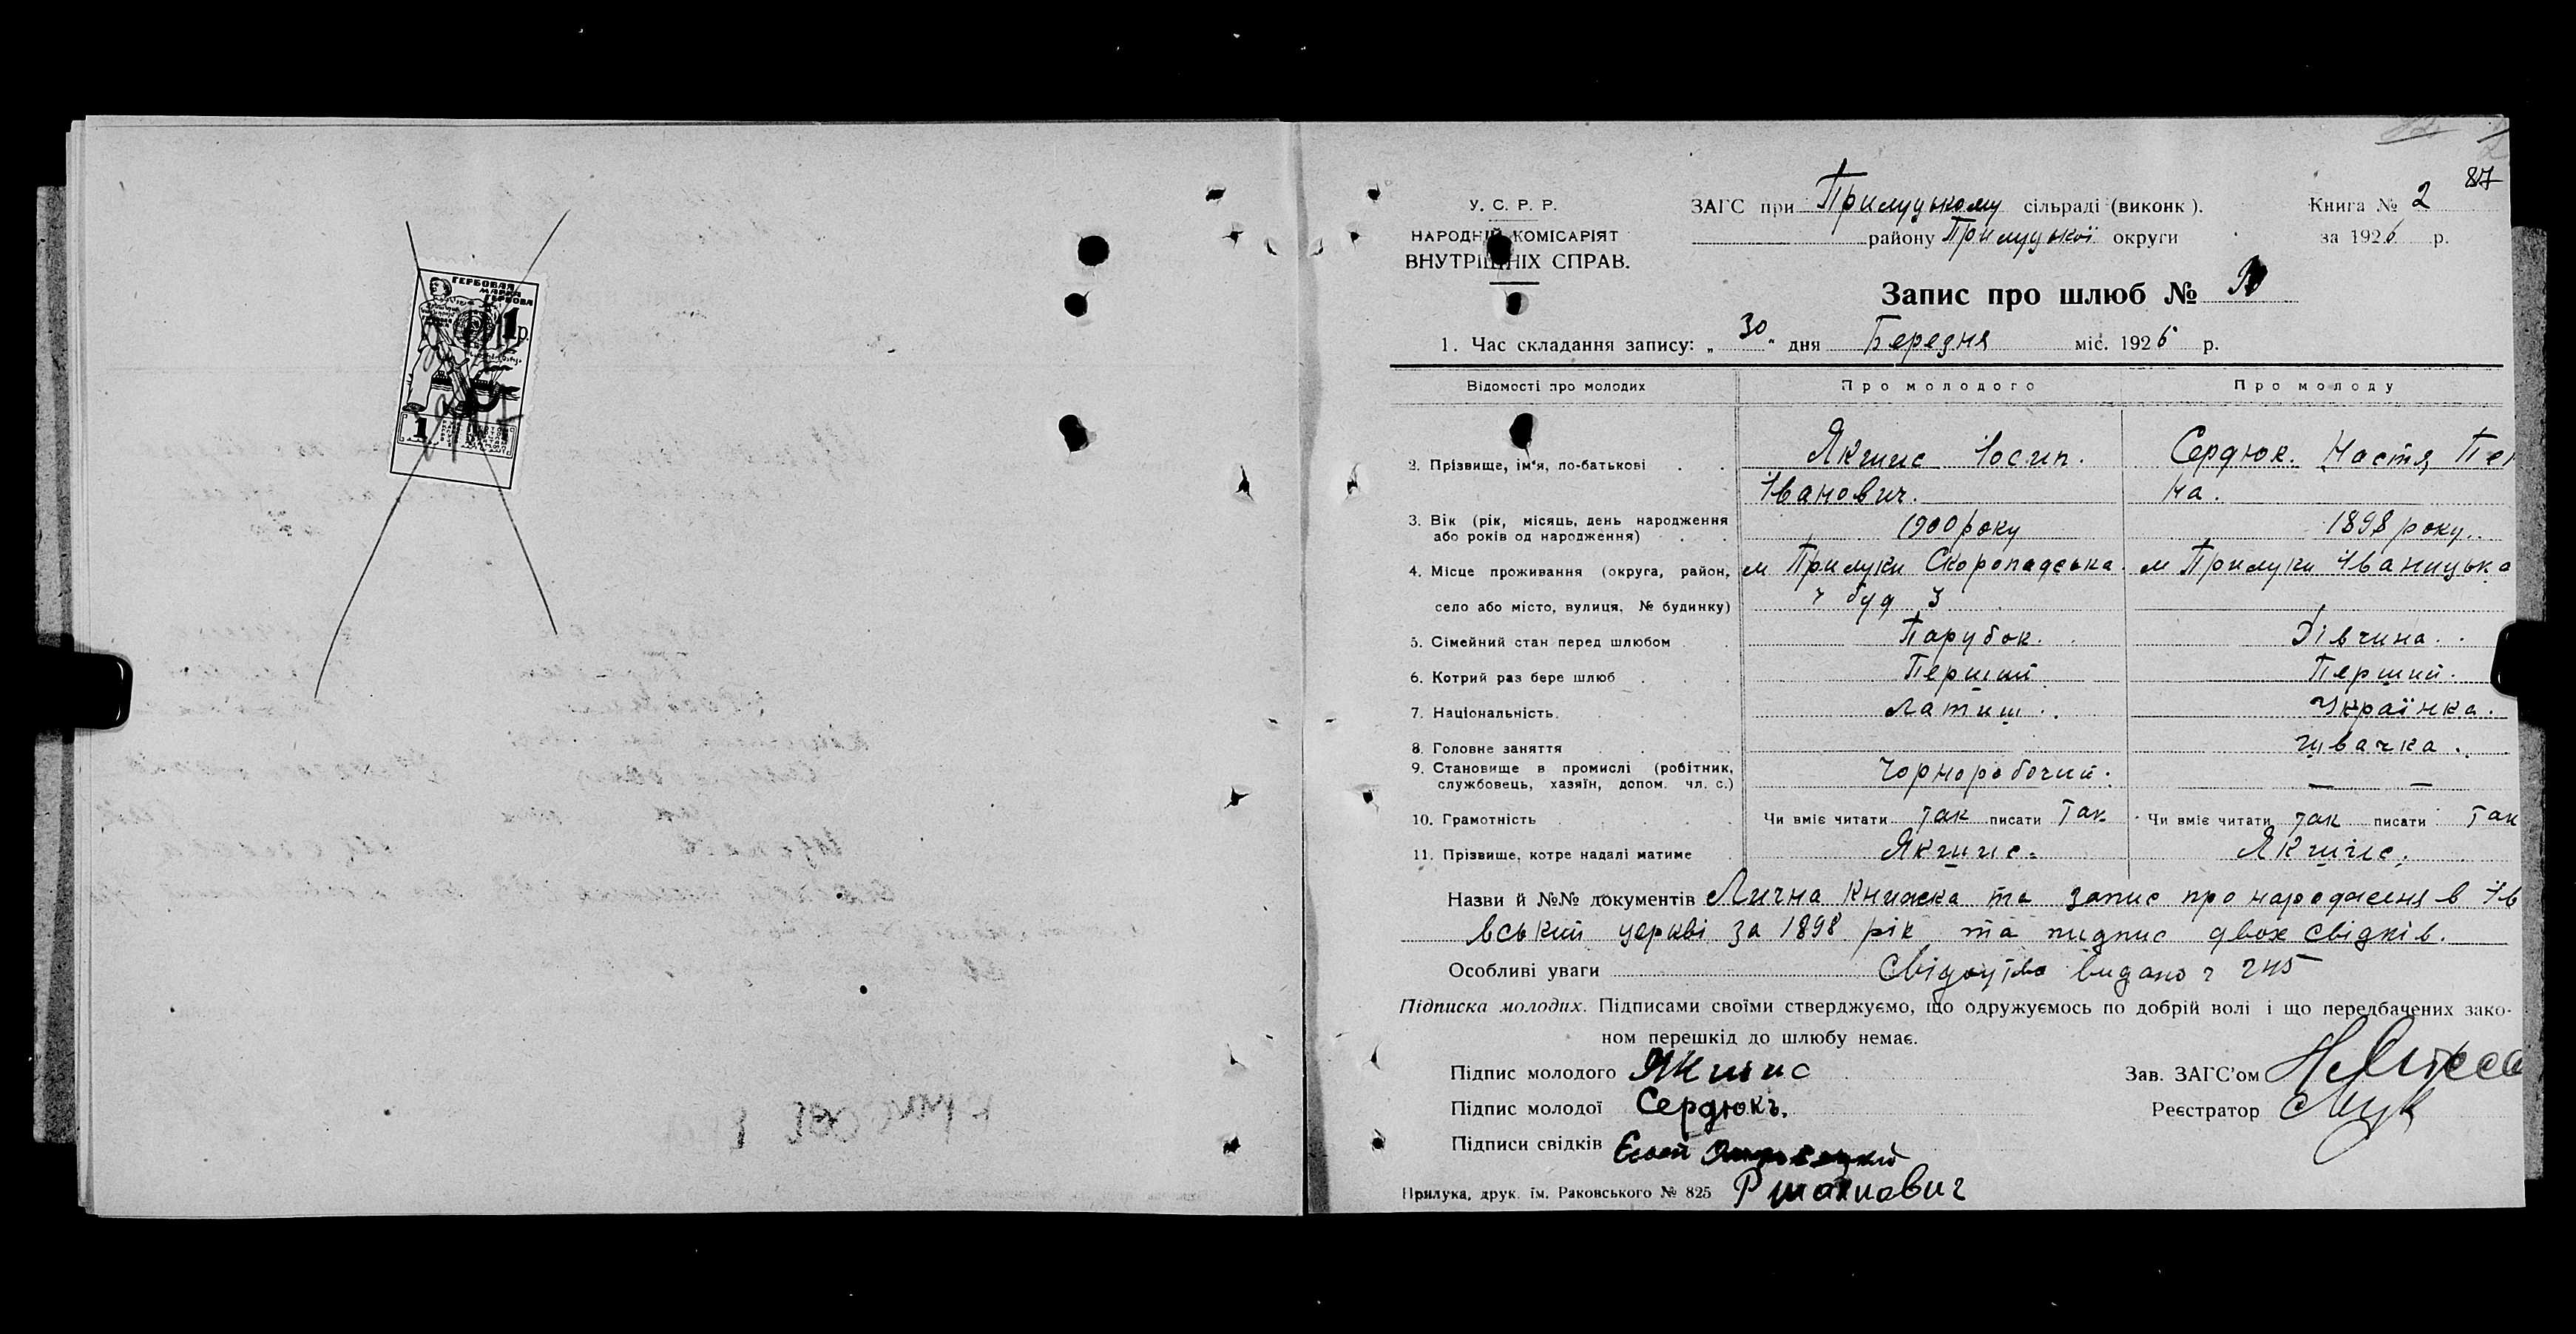 ГЕРБОВАЯ
МАРКА
ГЕРБОВА
1 р.
1
87
У. С. Р. Р.
НАРОДНІЙ КОМІСАРІЯТ
ВНУТРІШНІХ СПРАВ.
ЗАГС при Прилуцькому сільраді (виконк).
району Прилуцької округи
Книга № 2
за 1926 р.
Запис про шлюб №
1. Час складання запису: „30" дня Березня міс. 1926 р.
Відомості про молодих Про молодого Про молоду
2. Прізвище, ім'я, по-батькові Якшис Іосип. Сердюк. Настя
Іванович. на.
3. Вік (рік, місяць, день народження 1900 року 1898 року.
або років од народження)
4. Місце проживання (округа, район, м Прилуки Скоропадська. м Прилуки Іваницька
село або місто, вулиця, № будинку) ч буд 3
5. Сімейний стан перед шлюбом Парубок. Дівчина.
6. Котрий раз бере шлюб Перший Перший.
7. Національність. Латиш. Українка.
8. Головне заняття Швачка.
9. Становище в промислі (робітник, Чорноробочий. — —
службовець, хазяїн, допом. чл. с.)
10. Грамотність Чи вміє читати так писати так Чи вміє читати так писати так
11. Прізвище, котре надалі матиме Якшис. Якшис.
Назви й №№ документів Лична книжка та запис про народження в Ів
вський церкві за 1898 рік та підпис двох свідків.
Особливі уваги Свідоцтво видано ч 245
Підписка молодих. Підписами своїми стверджуємо, що одружуємось по добрій волі і що передбачених зако-
ном перешкід до шлюбу немає.
Підпис молодого Якшис
Зав. ЗАГС'ом
Підпис молодої Сердюкъ.
Реєстратор
Підписи свідків
Прилука, друк. ім. Раковського № 825